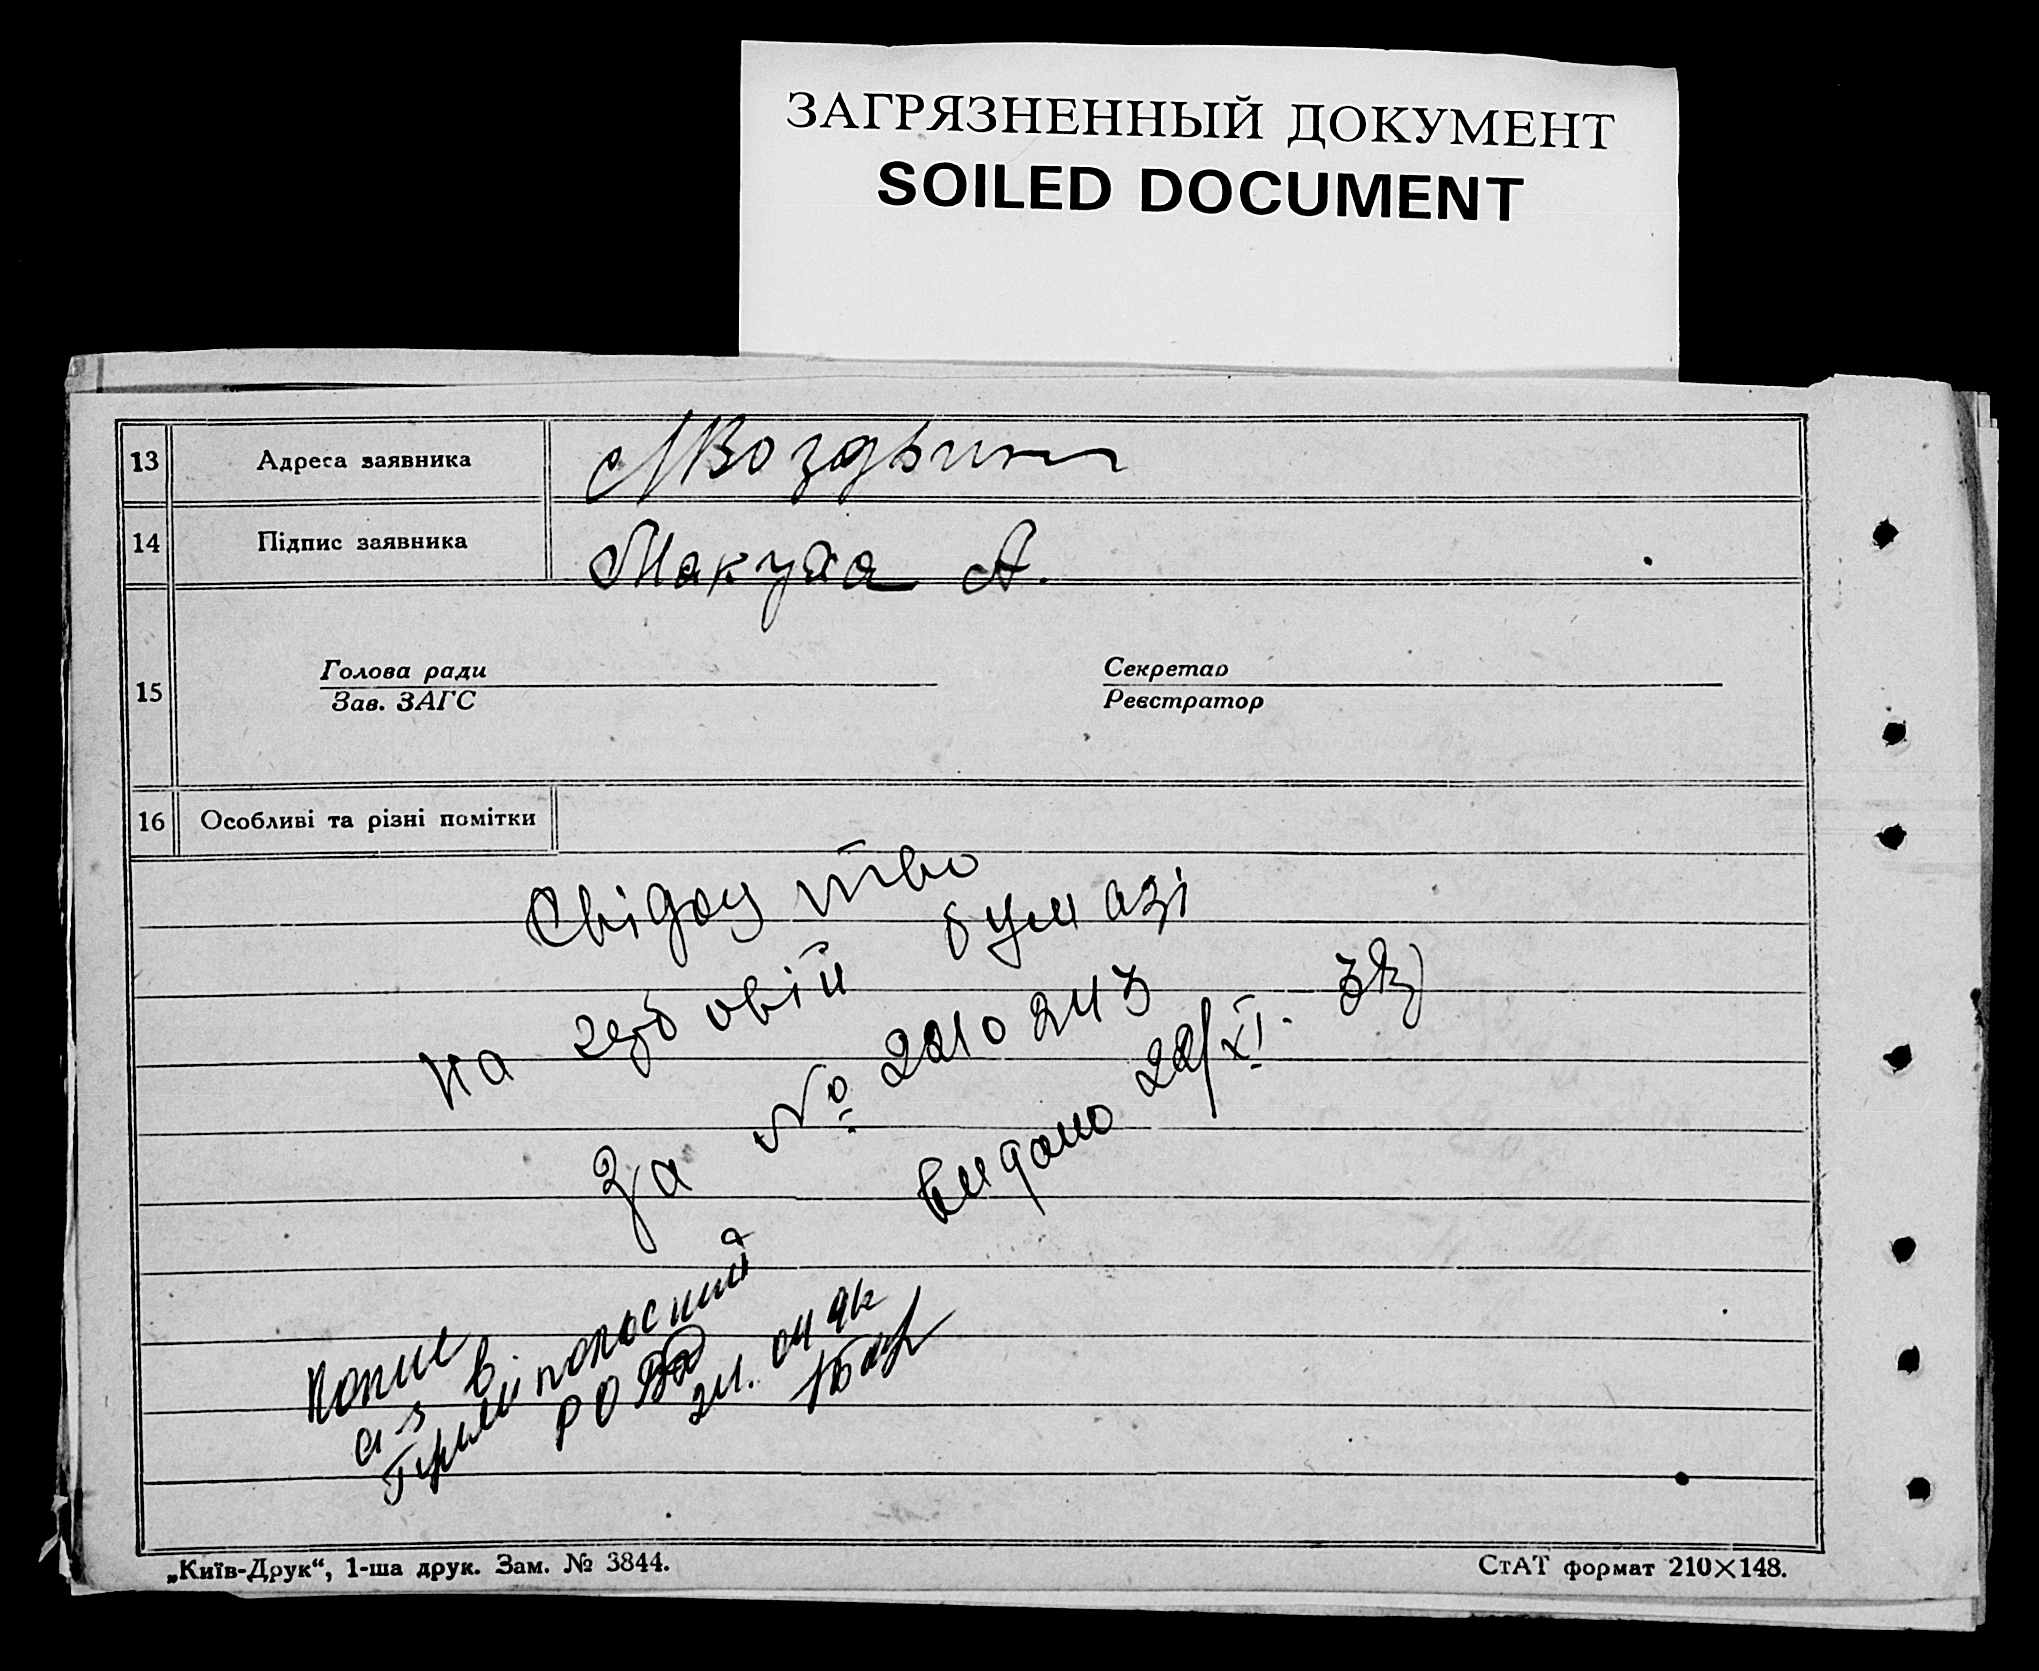 ЗАГРЯЗНЕННЫЙ ДОКУМЕНТ
SOILED DOCUMENT
13 Адреса заявника
14 Підпис заявника Макуха А.
15 Голова ради Секретар
Зав. ЗАГС Реєстратор
16 Особливі та різні помітки
Свідоцтво
на гербовій бумазі
За № 2210243
видано 22/XI.
в
РО
„Київ-Друк“, 1-ша друк. Зам. № 3844. СтАТ формат 210×148.